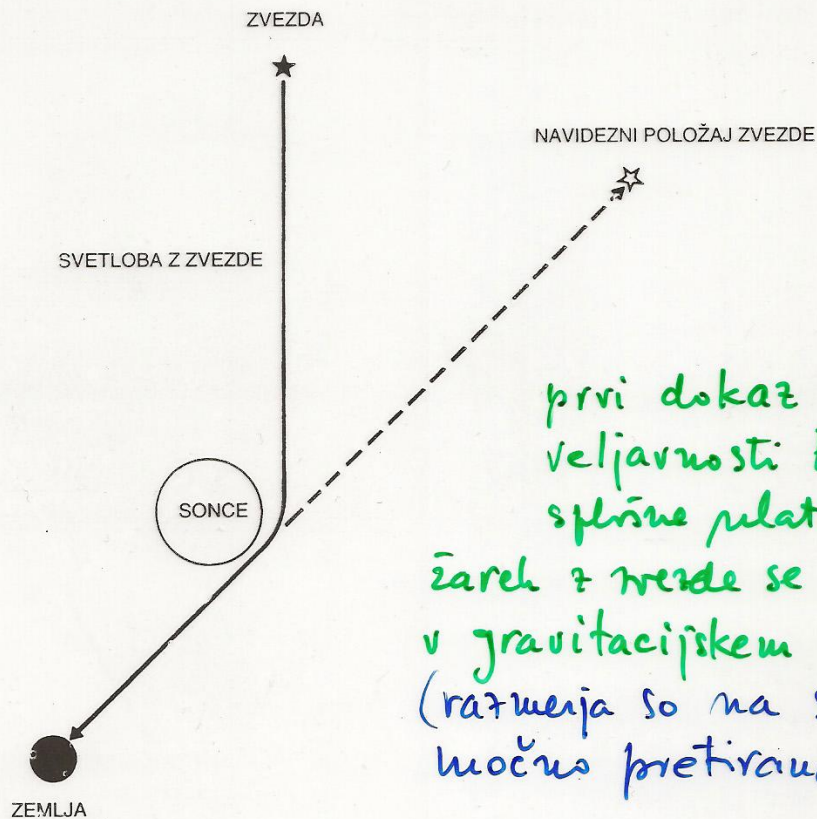 ZVEZDA
NAVIDEZNI POLOŽAJ ZVEZDE
SVETLOBA Z ZVEZDE
prvi dokaz
veljavnosti
SONCE
splošne
žarek z zvezde se
v gravitacijskem
(razmerja so na
močno
ZEMLJA